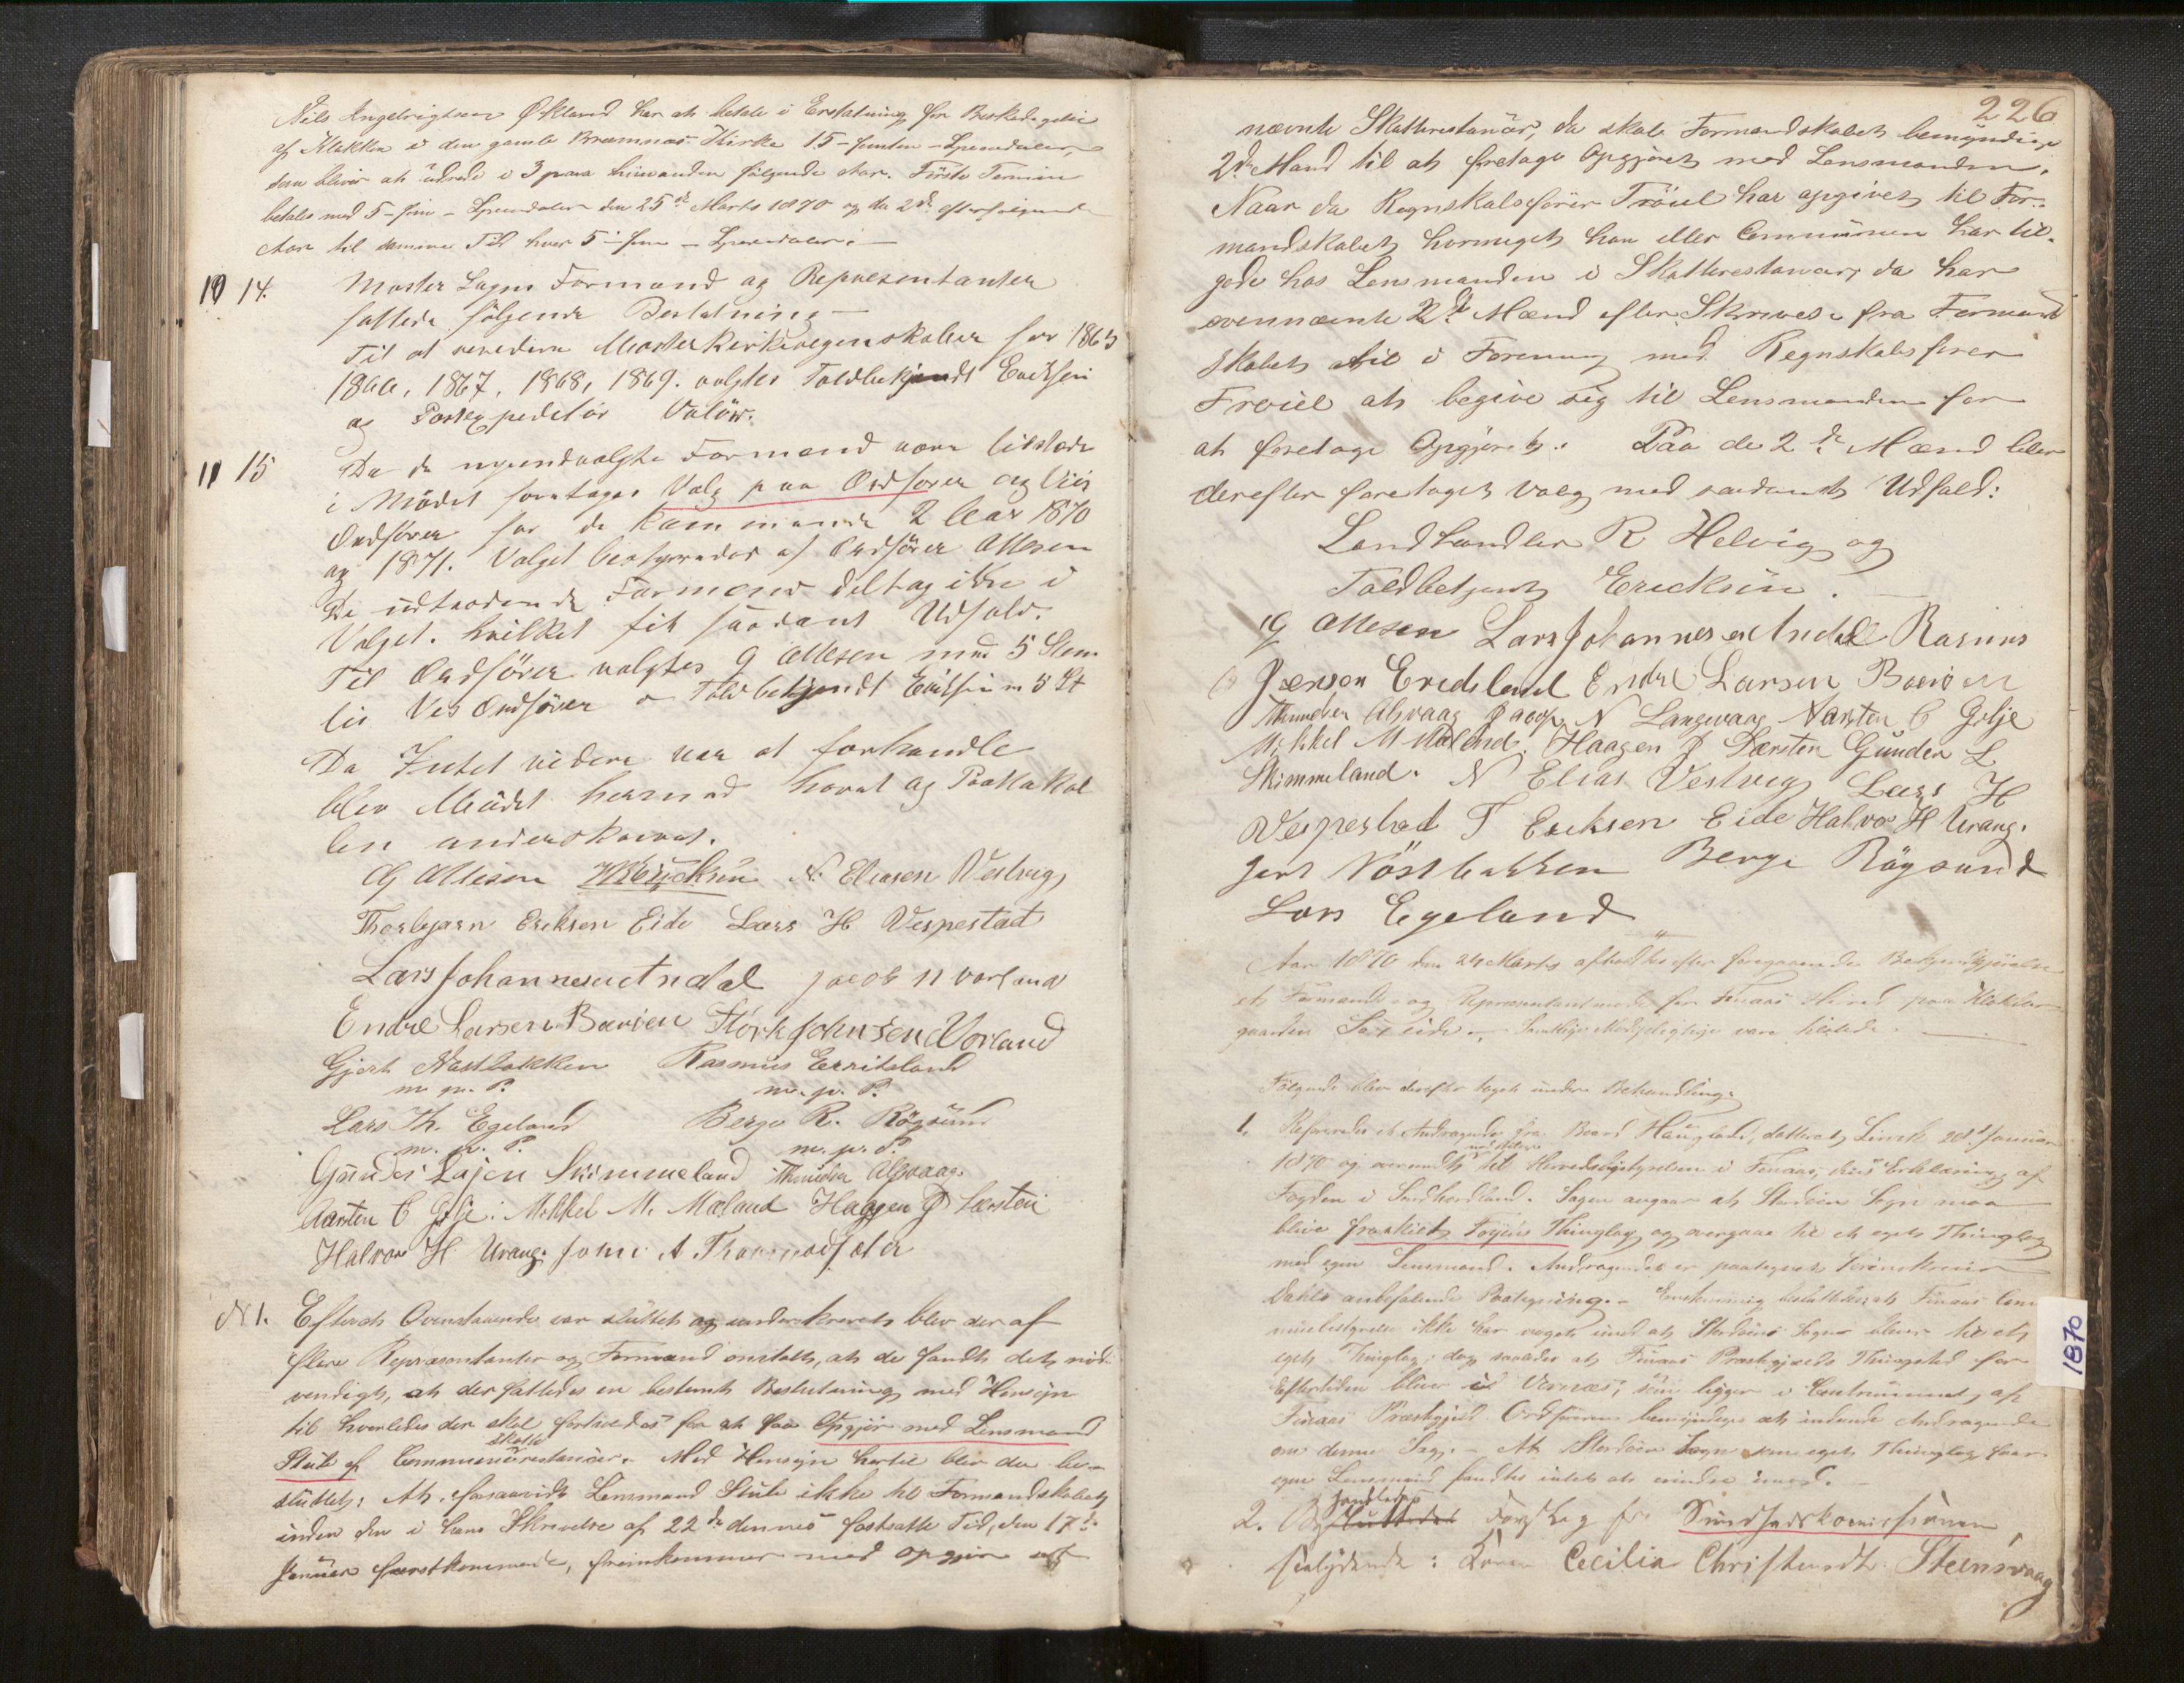 Nils Ingebrigtsen Økland har at betale i Erstatning for Beskadigelse
af Klokken i den gamle Bremnæs Kirke 15 - femten - Speciedaler,
som bliver at udrede i 3 paa hinanden følgende Aar. Første Termin
betales med 5 - fem - Speciedaler den 25de Marts 1870 og de 2de efterfølgende
Aar til samme Tid hver 5 - fem - Speciedaler. -
10 14. Moster Sogns Formænd og Repræsentanter
fattede følgende Beslutning -
Til at revidere Moster Kirkeregenskaber for 1865
1866, 1867, 1868, 1869. valgtes Toldbetjendt Ericksen
og Postexpeditör Valöw.
11 15 Da de nyeindvalgte Formænd vare tilstede
i Mödet foretages Valg paa Ordförer og Vis
Ordförer for de kommende 2 Aar 1870
og 1871. Valget bestyredes af Ordförer Ollesen
De udtrædende Formænd deltog ikke i
Valget. hvilket fik saadant Udfald.
Til Ordförer valgtes G Ollesen med 5 Stem
til Vis Ordförer Toldbetjendt Ericksen m 5 St
Da Intet videre var at forhandle
blev Mödet hermed hævet og Protokol
len underskrevet.
G Ollesen Ericksen N. Eliasen Vestvig
Thorbjørn Eriksen Eide Lars H Vespestad
Lars Johannesen Indal Jacob N Vorland
Endre Larsen Børøen Størk Johnsen Vorland
Gjert Nøstbakken Rasmus Erritsland
m. p. P. m. p. P.
Lars Th. Egeland Berge R. Røgsund
m. p. P. m. p. P.
Gunder Lajen Skimmeland Thunder Alsvaag.
Karsten C Gilje. Mikkel M. Mæland Haagen J Særsten
Halvor H Urang. John A
N 1. Efterat Ovenstaaende var sluttet og underskrevet blev der af
flere Repræsentanter og Formænd omtalt, at de fandt det nød-
vendigt, at der fattedes en bestemt Beslutning med Hensyn
til hvorledes der skal forholdes for at faa Opgjør med Lensmand
Stub af Communeskatterestancer. Med Hensyn hertil blev der be-
sluttet: At, forsaavidt Lensmand Stub ikke til Formandskabet
inden den i hans Skrivelse af 22de dennes fastsatte Tid, den 17de
Januar førstkommende, fremkommer med Opgjør af
226
nævnte Skatterestancer, da skal Formandskabet bemyndige
2de Mænd til at foretage Opgjøret med Lensmanden.
Naar da Regnskabsfører Trøiel har opgivet til For-
mandskabet hvormeget han eller Communen har til-
gode hos Lensmanden i Skatterestancer, da har
ovennævnte 2de Mænd efter Skrivelse fra Formand
skabet at i Forening med Regnskabsfører
Trøiel at begive sig til Lensmanden for
at foretage Opgjøret. Paa de 2de Mænd blev
derefter foretaget Valg med saadant Udfald:
Landhandler R Helvig og
Toldbetjent Ericksen.
G Ollesen Lars Johannesen Indal Rasmus
Jensen Eredsland Endre Larsen Børøen
Thunder Alsvaag Jacop N Langevaag Karsten C Gilje
Mikkel M Mæland. Haagen J Særsten Gunder L
Skimmeland. N Elias Vestvig Lars H
Vespestad T Ericksen Eide Halvor H Urang.
Gert Nöstbakken Berge Røgsund
Lars Egeland
Aar 1870 den 24 Marts afholdtes efter foregaaende Bekjendtgjørelse
et Formands og Repræsentantmøde for Finaas Herred paa Klokker-
gaarden Søreide. - Samtlige Medlemmer vare tilstede. -
Følgende blev derefter taget under Behandling:
1. Refereredes et Andragende fra Baard Haugland, datteret Lervik 20de Januar
1870 og oversendt til Herredsbestyrelsen i Finaas, Erklæring af
Fogden i Sundhordland. Sagen angaar at Stordøen Sogn maa
blive fraskilt Føyens Thinglag og overgaa til et eget Thinglag
med egen Lensmand. Andragendet er paategnet
Dahls anbefalende Paategning. - Enstemmig besluttedes at Finaas Com-
munebestyrelse ikke har noget imod at Stordøens Sogn bliver til et
eget Thinglag; dog saaledes at Finaas Præstegjælds Thingsted for
Eftertiden bliver i Vernæs, som ligger i Centrummet af
Finaas Præstegjæld. Ordføreren bemyndiges at indsende Andragende
om denne Sag. - At Stordøen Sogn som eget Thinglag faar
egen Lensmand fandtes intet at erindre imod. -
2. Forslag fra Sundhedskomissionen
saalydende: Konen Cecilia Christensdt. Steensvaag
1870